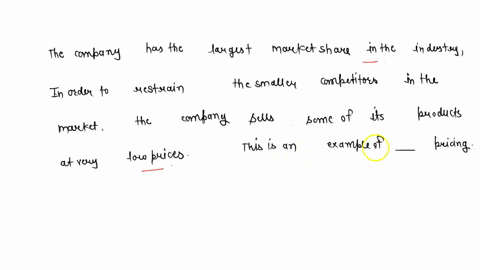 The company has the largest market share in the industry,
In order to restrain the smaller competitors in the
market, the company sells some of its products
at very low prices. This is an example of ___ pricing.